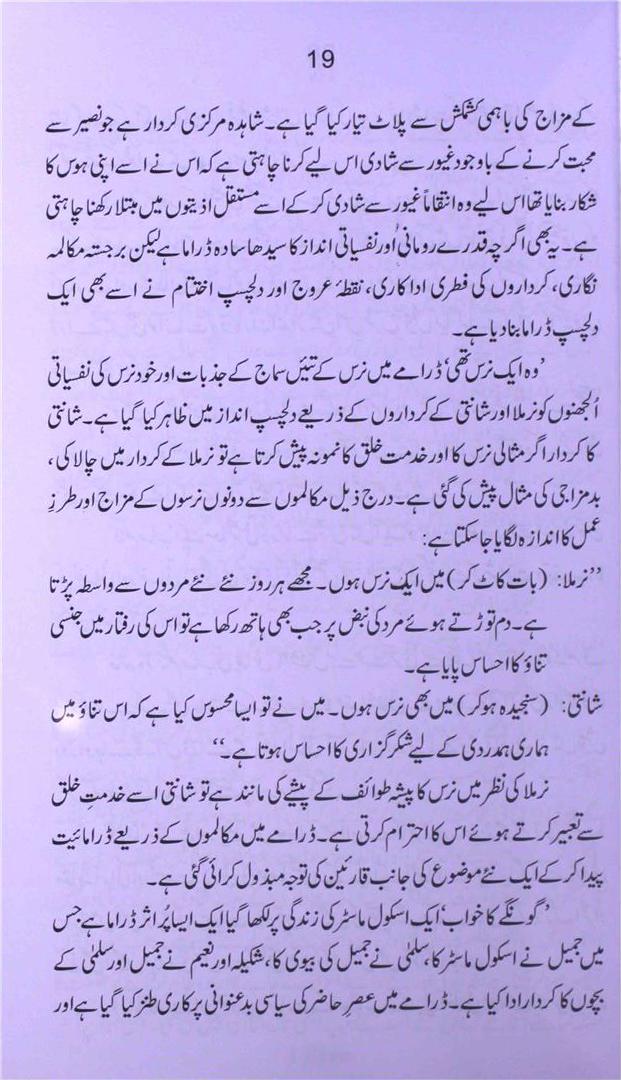 19
کے مزاج کی باہمی کشمکش سے پلاٹ تیار کیا گیا ہے۔ شاہدہ مرکزی کردار ہے جو نصیر سے
محبت کرنے کے باوجود غیور سے شادی اس لیے کرنا چاہتی ہے کہ اس نے اسے اپنی ہوس کا
شکار بنایا تھا اس لیے وہ انتقاماً غیور سے شادی کر کے اسے مستقل اذیتوں میں مبتلا رکھنا چاہتی
ہے۔ یہ بھی اگرچہ قدرے رومانی اور نفسیاتی انداز کا سیدھا سادہ ڈراما ہے لیکن برجستہ مکالمہ
نگاری، کرداروں کی فطری اداکاری، نقطۂ عروج اور دلچسپ اختتام نے اسے بھی ایک
دلچسپ ڈراما بنا دیا ہے۔
’وہ ایک نرس تھی‘ ڈرامے میں نرس کے تئیں سماج کے جذبات اور خود نرس کی نفسیاتی
اُلجھنوں کو نرملا اور شانتی کے کرداروں کے ذریعے دلچسپ انداز میں ظاہر کیا گیا ہے۔ شانتی
کا کردار اگر مثالی نرس کا اور خدمت خلق کا نمونہ پیش کرتا ہے تو نرملا کے کردار میں چالاکی،
بدمزاجی کی مثال پیش کی گئی ہے۔ درج ذیل مکالموں سے دونوں نرسوں کے مزاج اور طرزِ
عمل کا اندازہ لگایا جا سکتا ہے:
’’نرملا: (بات کاٹ کر) میں ایک نرس ہوں۔ مجھے ہر روز نئے نئے مردوں سے واسطہ پڑتا
ہے۔ دم توڑتے ہوئے مرد کی نبض پر جب بھی ہاتھ رکھا ہے تو اس کی رفتار میں جنسی
تناؤ کا احساس پایا ہے۔
شانتی: (سنجیدہ ہو کر) میں بھی نرس ہوں۔ میں نے تو ایسا محسوس کیا ہے کہ اس تناؤ میں
ہماری ہمدردی کے لیے شکر گزاری کا احساس ہوتا ہے۔‘‘
نرملا کی نظر میں نرس کا پیشہ طوائف کے پیشے کی مانند ہے تو شانتی اسے خدمتِ خلق
سے تعبیر کرتے ہوئے اس کا احترام کرتی ہے۔ ڈرامے میں مکالموں کے ذریعے ڈرامائیت
پیدا کر کے ایک نئے موضوع کی جانب قارئین کی توجہ مبذول کرائی گئی ہے۔
’گونگے کا خواب‘ ایک اسکول ماسٹر کی زندگی پر لکھا گیا ایک ایسا پُر اثر ڈراما ہے جس
میں جمیل نے اسکول ماسٹر کا، سلمٰی نے جمیل کی بیوی کا، شکیلہ اور نعیم نے جمیل اور سلمٰی کے
بچوں کا کردار ادا کیا ہے۔ ڈرامے میں عصرِ حاضر کی سیاسی بدعنوانی پر کاری طنز کیا گیا ہے اور